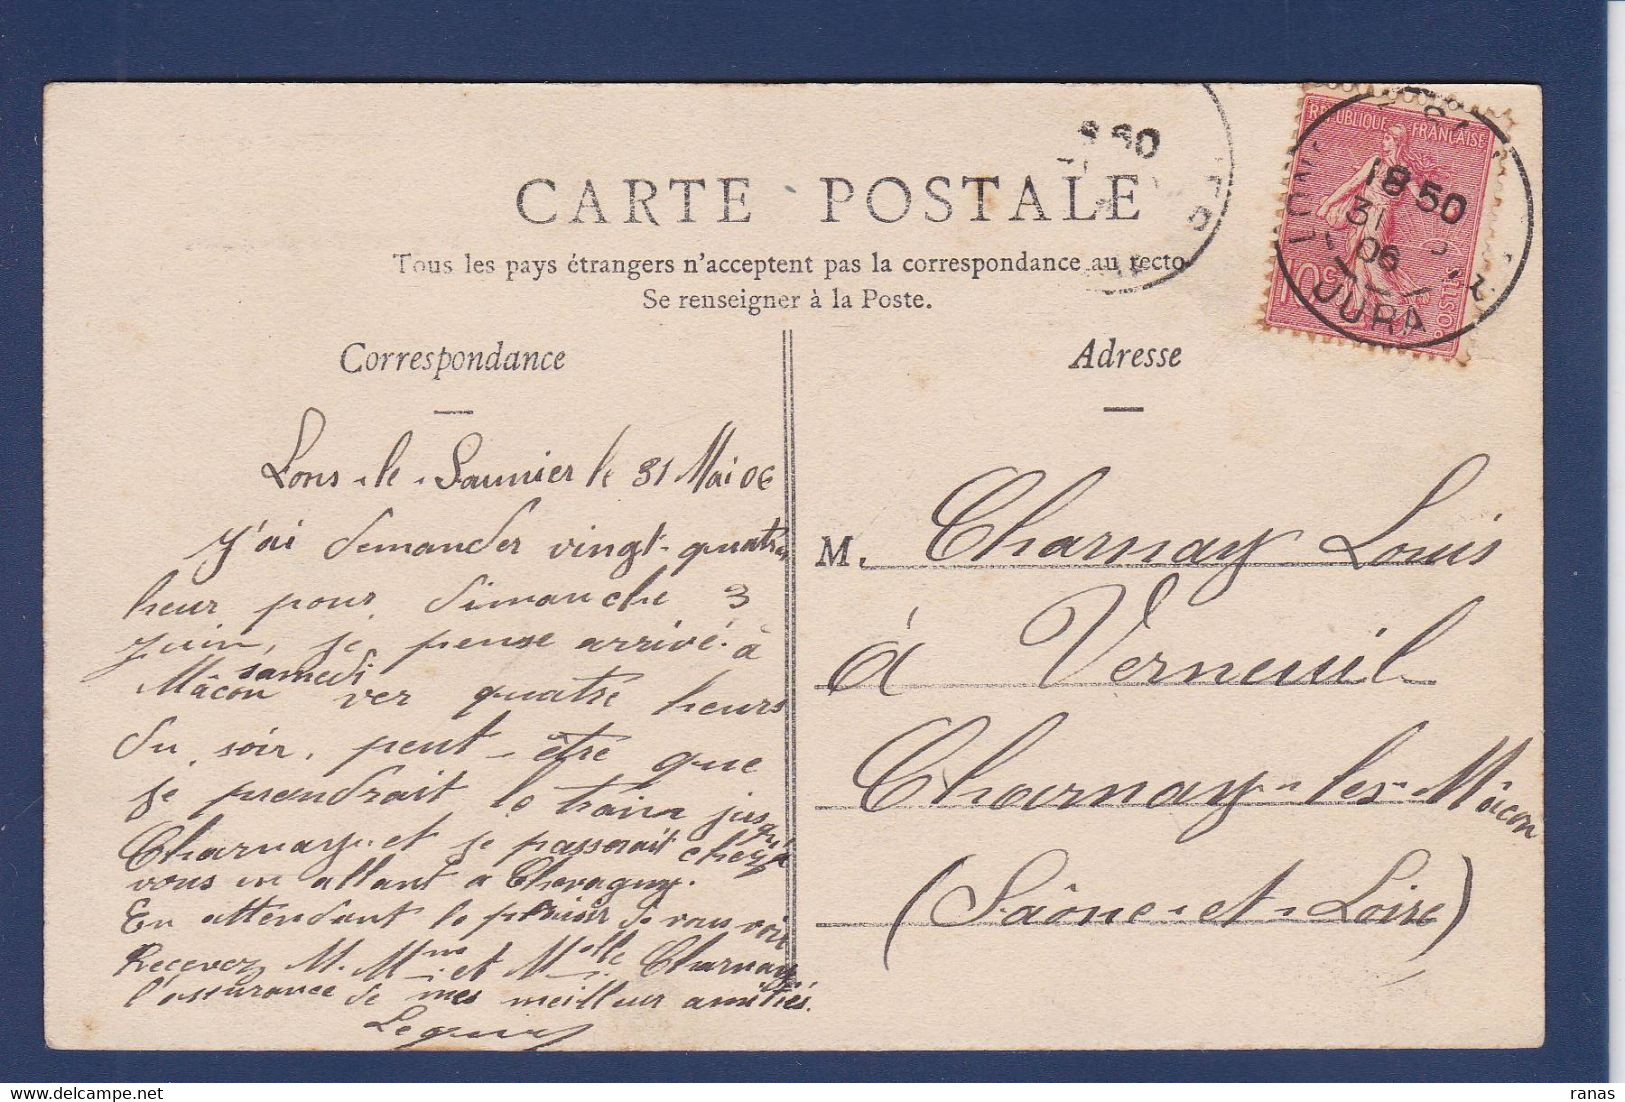 CARTE POSTALE
Tous les pays étrangers n'acceptent pas la correspondance au recto
Se renseigner à la Poste.
Correspondance
Adresse
Lons-le-Saunier le 31 Mai 06
J'ai demander vingt-quatre
heur pour dimanche 3
juin, je pense arrivé à
Mâcon samedi ver quatre heurs
du soir, peut-être que
je prendrait le train jusqu'à
Charnay et je passerait chez
vous en allant à Chevagny.
En attendant le plaisir de vous voir
Recevez M. Mme et Melle Charnay
l'assurance de mes meilleur amitiés.
M. Charnay Louis
à Verneuil
Charnay-les-Mâcon
(Saône-et-Loire)
REPUBLIQUE FRANÇAISE
10c POSTES
18 50
31
06
JURA
ranas